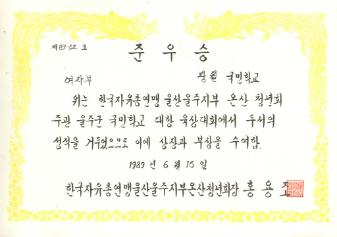 제89-52호
준우승
여자부
국민학교
위는 한국자유총연맹 울산울주지부 온산 청년회
주관 울주군 국민학교 대항 육상대회에서 두서의
성적을 거두었으므로 이에 상장과 부상을 수여함.
1989년 6월 15일
한국자유총연맹울산울주지부온산청년회장 홍용조